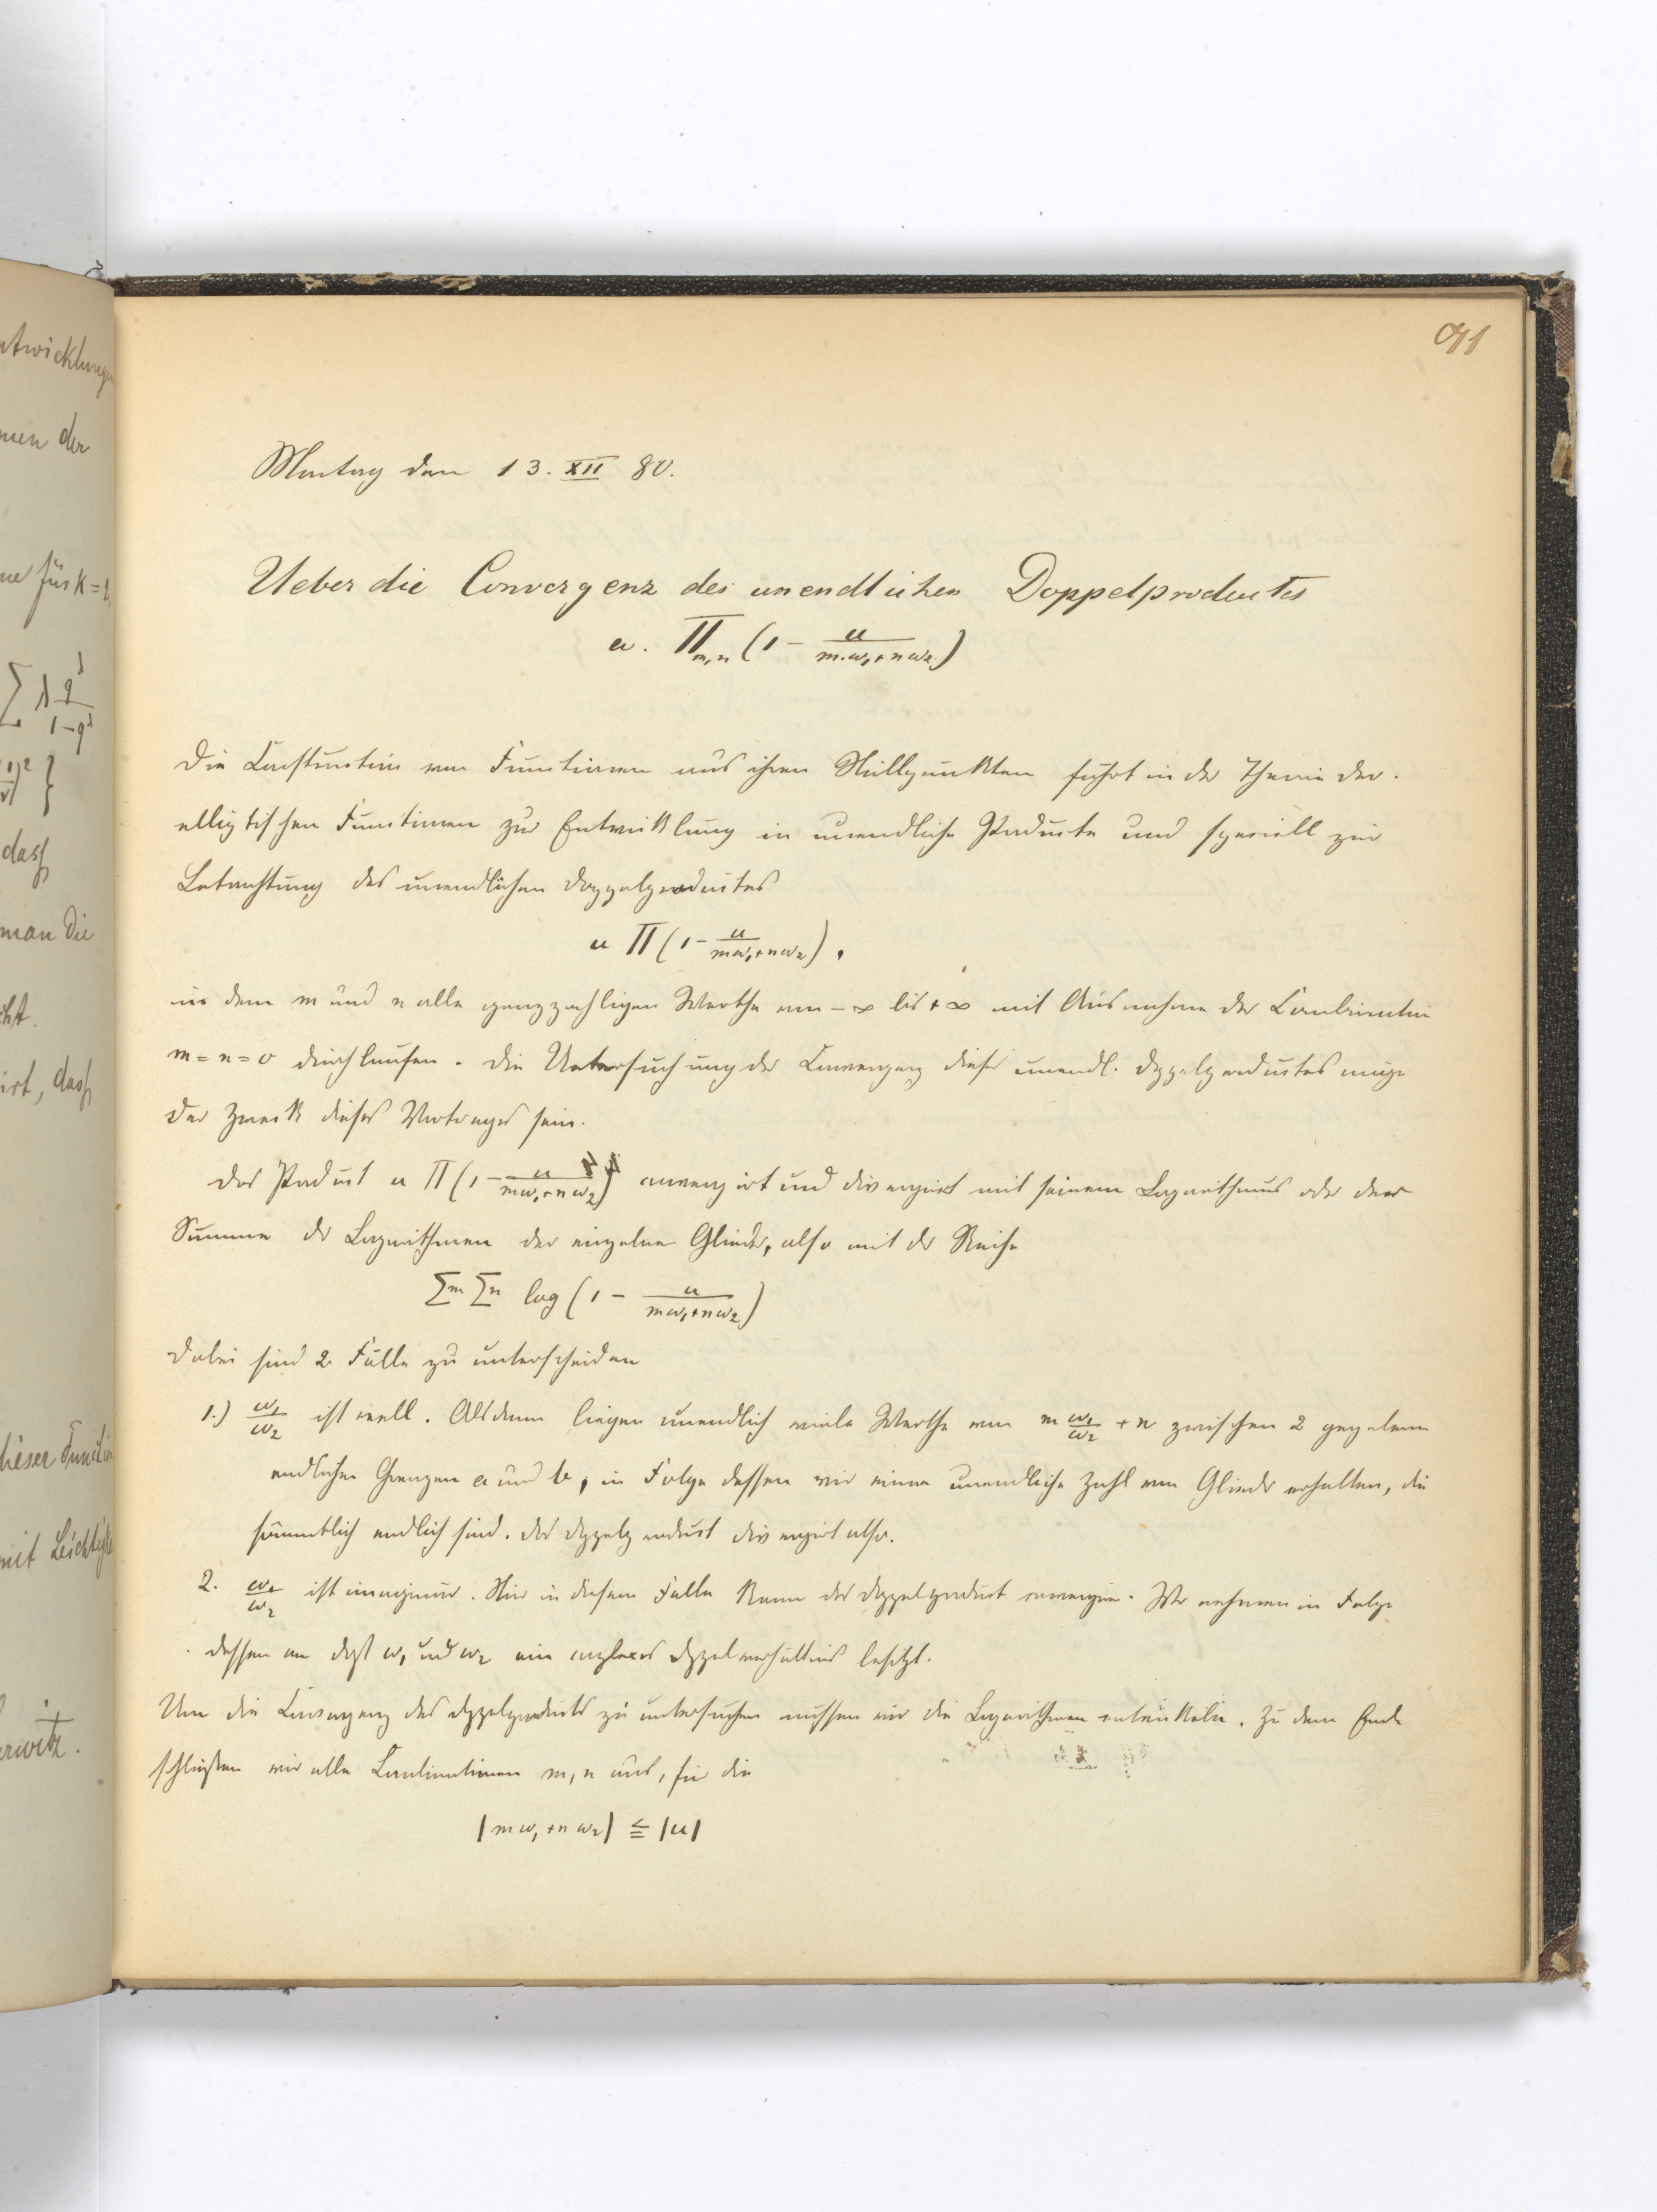 91
Montag den 13. XII 80.
Ueber die Convergenz des unendlichen Doppelproductes
u. Π_{m,n} (1 - u/(m.ω₁+nω₂))
Die Construction von Functionen aus ihren Nullpunkten führt in der Theorie der
elliptischen Functionen zur Entwicklung in unendliche Producte und speciell zur
Betrachtung des unendlichen Doppelproductes
u Π (1 - u/(mω₁+nω₂)),
in dem m und n alle ganzzahligen Werthe von -∞ bis +∞ mit Ausnahme der Combination
m = n = 0 durchlaufen. Die Untersuchung der Convergenz dieses unendl. Doppelproductes möge
der Zweck dieses Vortrages sein.
Das Product u Π (1 - u/(mω₁+nω₂)) convergirt und divergirt mit seinem Logarithmus oder der
Summe der Logarithmen der einzelnen Glieder, also mit der Reihe
Σᵐ Σⁿ log (1 - u/(mω₁+nω₂))
Dabei sind 2 Fälle zu unterscheiden
1.) ω₁/ω₂ ist reell. Alsdann liegen unendlich viele Werthe von m ω₁/ω₂ + n zwischen 2 gegebenen
endlichen Grenzen a und b, in Folge dessen wir eine unendliche Zahl von Glieder erhalten, die
sämmtlich endlich sind. Das Doppelproduct divergirt also.
2. ω₁/ω₂ ist imaginär. Nur in diesem Falle kann das Doppelproduct convergiren. Wir nehmen in Folge
dessen an dass ω₁ und ω₂ ein complexes Doppelverhältnis besitzt.
Um die Convergenz des Doppelproducts zu untersuchen müssen wir die Logarithmen entwickeln. Zu dem Ende
schließen wir alle Combinationen m, n aus, für die
|mω₁+nω₂| ≦ |u|
ntwicklungen
men der
ne für k = 2
Σ λ q^λ/(1-q^λ)
dass
man die
cht.
irt, dass
dieser Function
mit Leichtigk
rwitz.